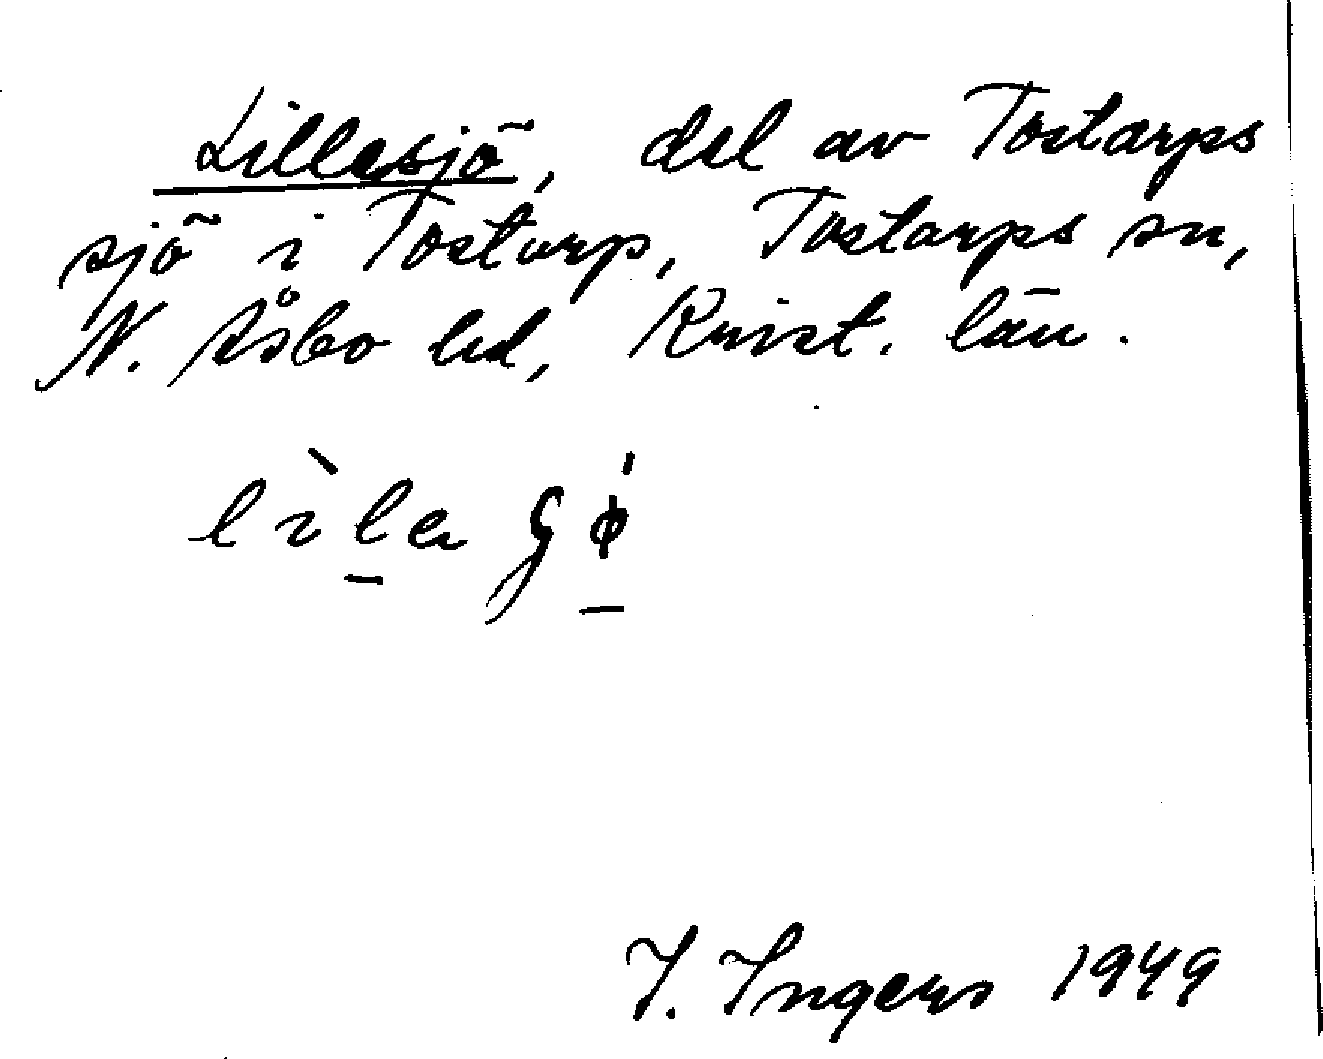 Lillesjö, del av Tostarps
sjö i Tostarp, Tostarps sn,
N. Åsbo hd, Krist. län.
I. Ingers 1949